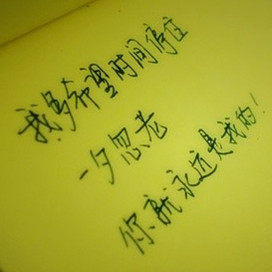 我多希望时间停住
一夕忽老
你就永远是我的!